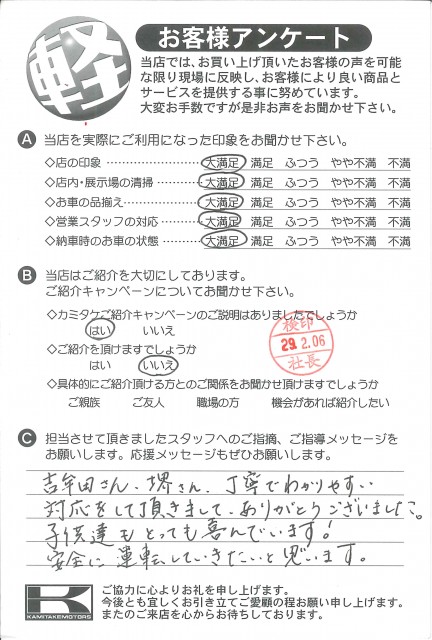 軽
お客様アンケート
当店では、お買い上げ頂いたお客様の声を可能
な限り現場に反映し、お客様により良い商品と
サービスを提供する事に努めています。
大変お手数ですが是非お声をお聞かせ下さい。
A 当店を実際にご利用になった印象をお聞かせ下さい。
◇店の印象 大満足 満足 ふつう やや不満 不満
◇店内・展示場の清掃 大満足 満足 ふつう やや不満 不満
◇お車の品揃え 大満足 満足 ふつう やや不満 不満
◇営業スタッフの対応 大満足 満足 ふつう やや不満 不満
◇納車時のお車の状態 大満足 満足 ふつう やや不満 不満
B 当店はご紹介を大切にしております。
ご紹介キャンペーンについてお聞かせ下さい。
◇カミタケご紹介キャンペーンのご説明はありましたでしょうか
はい いいえ
検印
29.2.06
社長
◇ご紹介を頂けますでしょうか
はい いいえ
◇具体的にご紹介頂ける方とのご関係をお聞かせ頂けますでしょうか
ご親族 ご友人 職場の方 機会があれば紹介したい
C 担当させて頂きましたスタッフへのご指摘、ご指導メッセージを
お願いします。応援メッセージもぜひお願いします。
吉牟田さん、堺さん、丁寧でわかりやすい
対応をして頂きまして、ありがとうございました。
子供達もとっても喜んでいます!
安全に運転していきたいと思います。
K
KAMITAKEMOTORS
ご協力に心よりお礼を申し上げます。
今後とも宜しくお引き立てご愛顧の程お願い申し上げます。
またのご来店を心からお待ちしております。